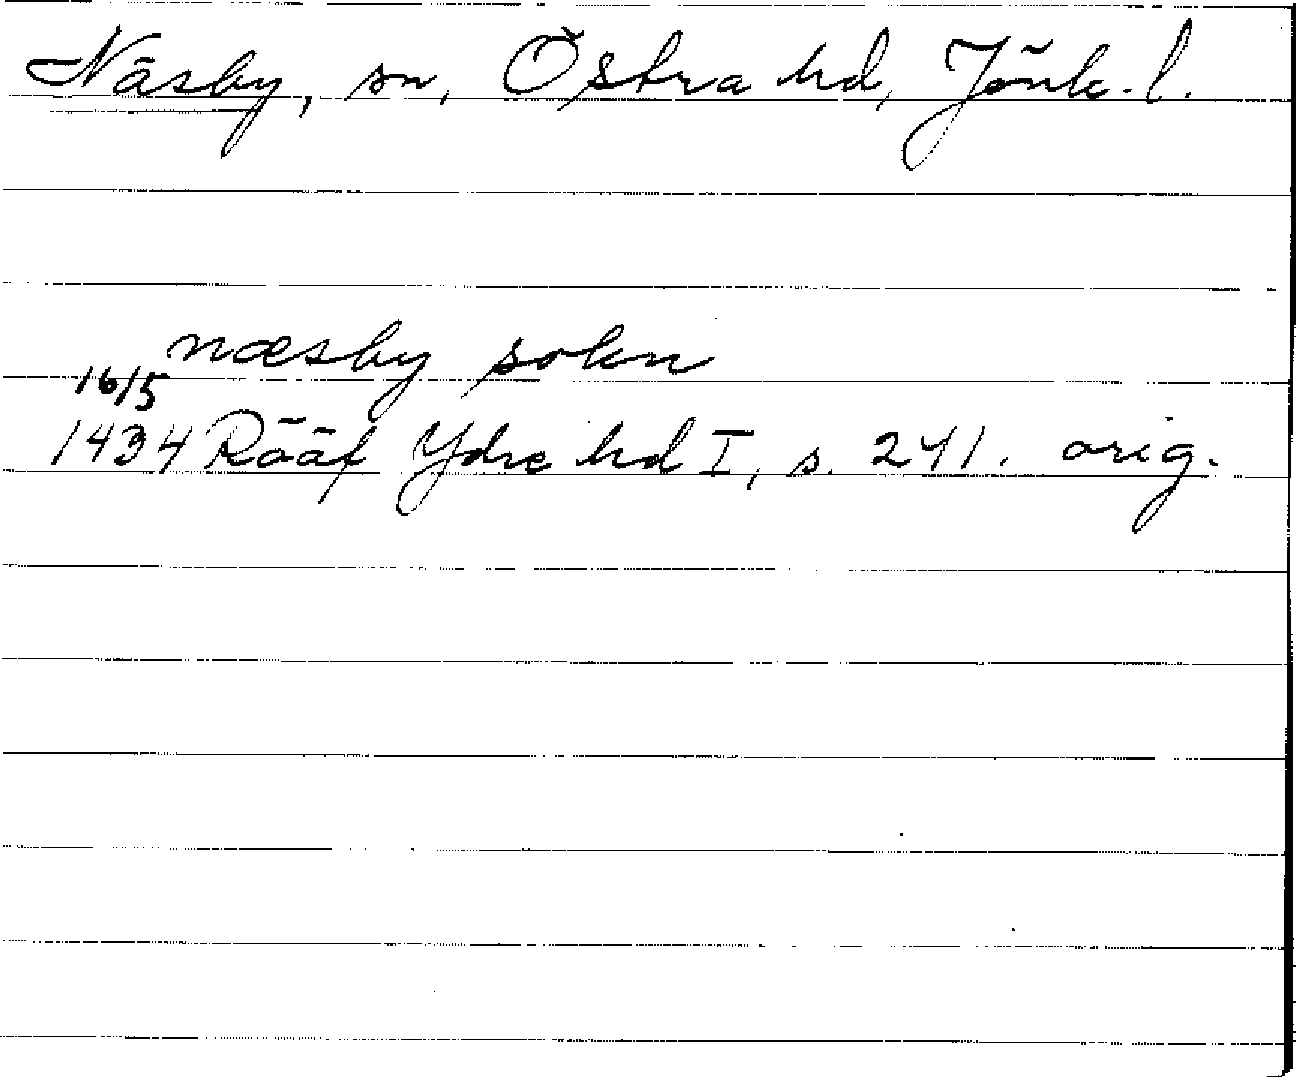 Näsby, sn, Östra hd, Jönk. l.
næsby sokn
16/5
1434 Rääf Ydre hd I, s. 241. orig.